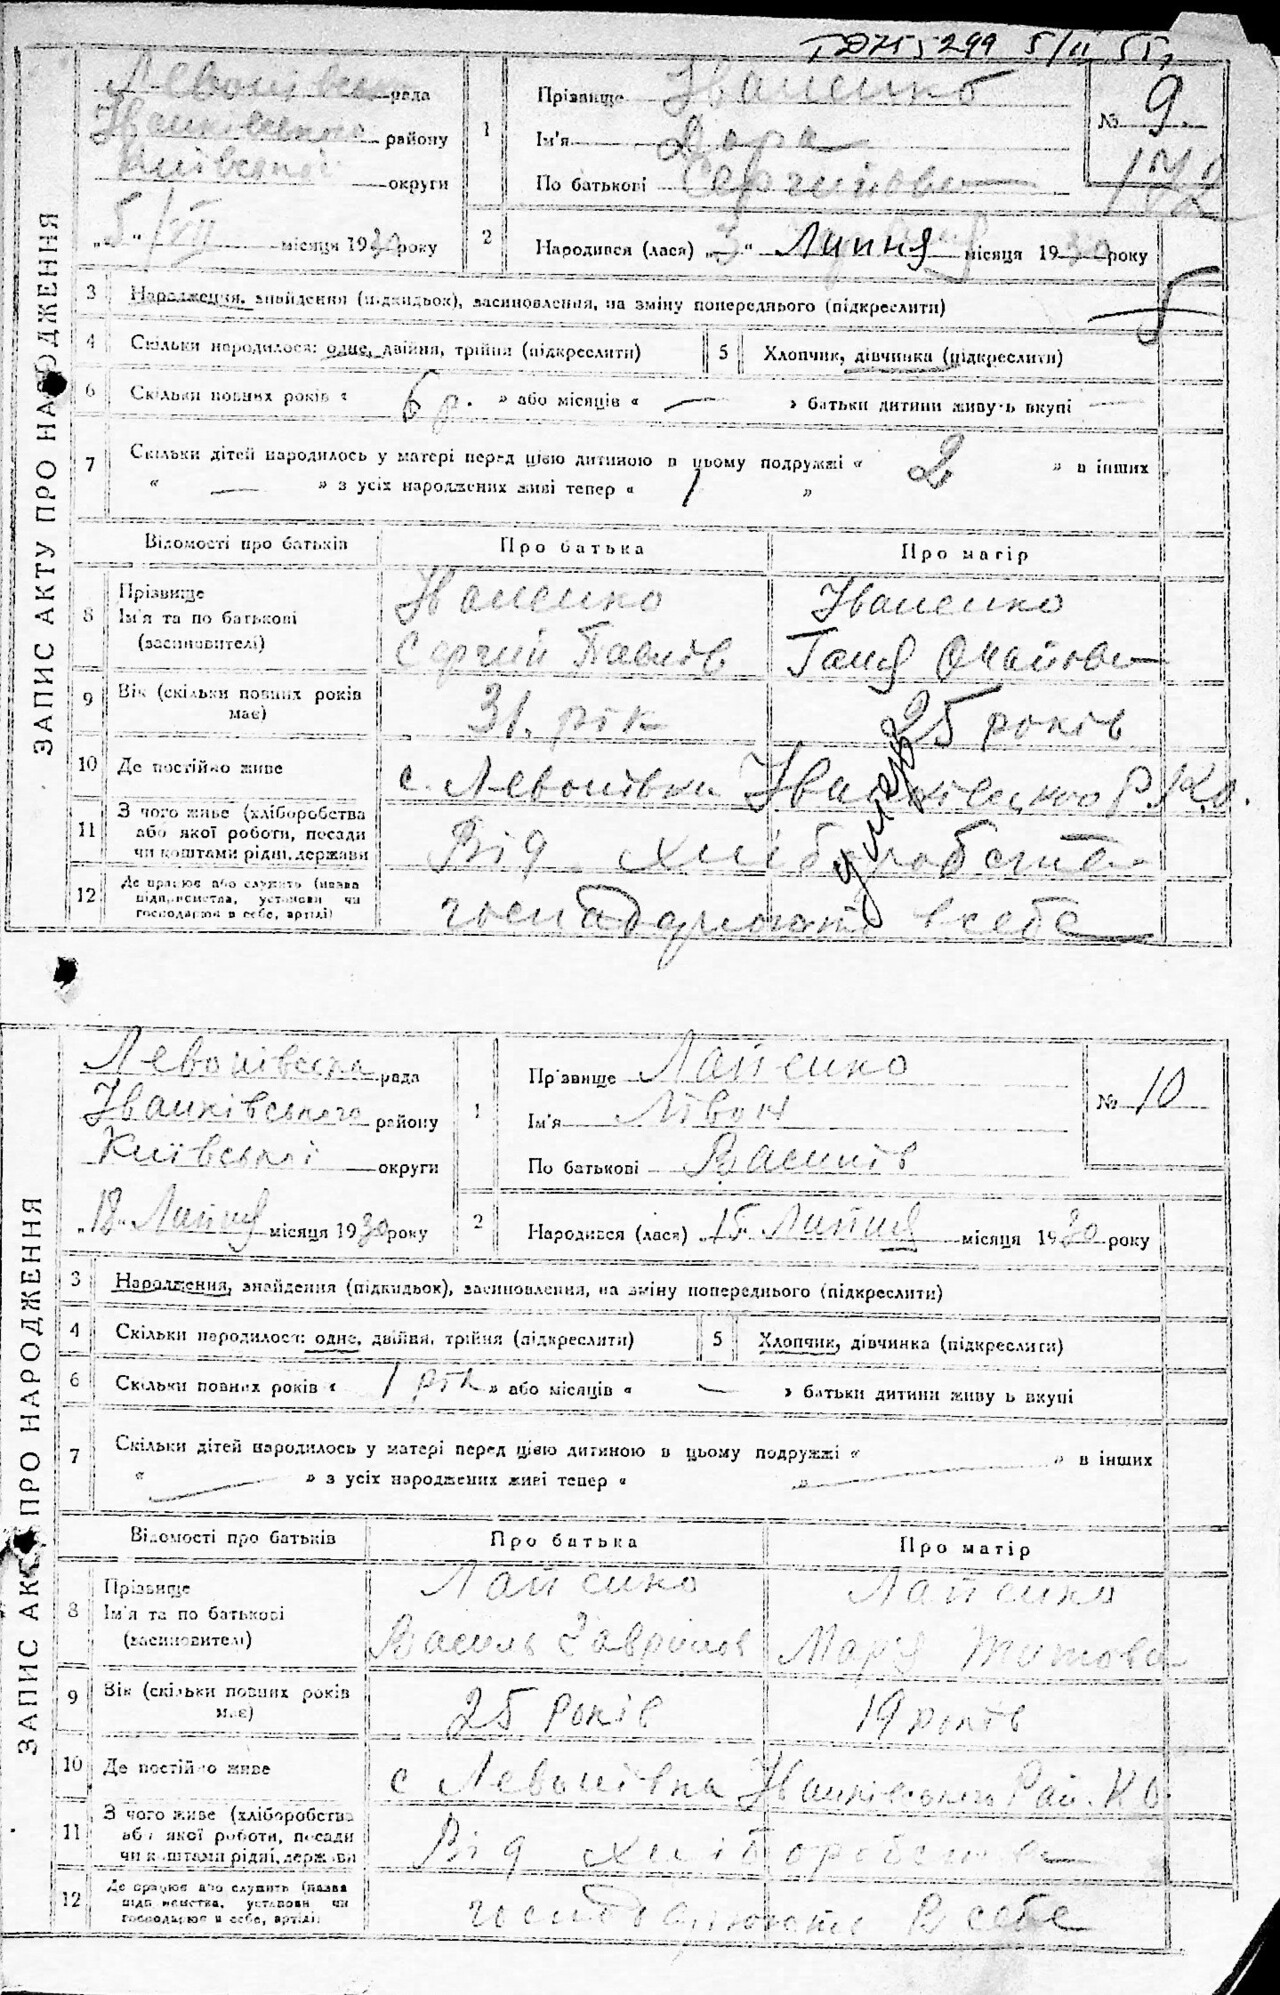 5/II 55,
ЗАПИС АКТУ ПРО НАРОДЖЕННЯ
Левонівська рада
Іванківського району
Київської округи
„5“ /VII місяця 1930 року
1 Прізвище Іваненко
Ім'я Дора
По батькові Сергийовна
№ 9.
2 Народився (лася) „3“ Липня місяця 1930 року
3 Народження, знайдення (підкидьок), засиновлення, на зміну попереднього (підкреслити)
4 Скільки народилося: одне, двійня, трійня (підкреслити)
5 Хлопчик, дівчинка (підкреслити)
6 Скільки повних років « 6 р. » або місяців « — » батьки дитини живуть вкупі —
7 Скільки дітей народилось у матері перед цією дитиною в цьому подружжі « 2 » в інших
« — » з усіх народжених живі тепер « 1 »
Відомості про батьків Про батька Про матір
8 Прізвище Іваненко Іваненко
Ім'я та по батькові Сергий Павлов Ганя
(засиновителі)
9 Вік (скільки повних років має) 31. рік 25 років
10 Де постійно живе с. Левонівка Іванківського Р. К.О.
11 З чого живе (хліборобства або якої роботи, посади чи коштами рідні, держави Від хліборобства
12 Де працює або служить (назва підприємства, установи чи господарює в себе, артілі) господарюють в себе
умер
ЗАПИС АКТУ ПРО НАРОДЖЕННЯ
Левонівська рада
Іванківського району
Київської округи
„18“ Липня місяця 1930 року
1 Прізвище Лапенко
Ім'я Лівон
По батькові Василів
№ 10
2 Народився (лася) „15“ Липня місяця 1930 року
3 Народження, знайдення (підкидьок), засиновлення, на зміну попереднього (підкреслити)
4 Скільки народилося: одне, двійня, трійня (підкреслити)
5 Хлопчик, дівчинка (підкреслити)
6 Скільки повних років « 1 рік » або місяців « — » батьки дитини живуть вкупі
7 Скільки дітей народилось у матері перед цією дитиною в цьому подружжі « — » в інших
« — » з усіх народжених живі тепер « — »
Відомості про батьків Про батька Про матір
8 Прізвище Лапенко Лапенко
Ім'я та по батькові Василь Гаврилов Марія Титова
(засиновителі)
9 Вік (скільки повних років має) 25 років 19 років
10 Де постійно живе с Левонівка Іванківського Рай. К.О.
11 З чого живе (хліборобства або якої роботи, посади чи коштами рідні, держави Від хліборобства
12 Де працює або служить (назва підприємства, установи чи господарює в себе, артілі) господарюють в себе